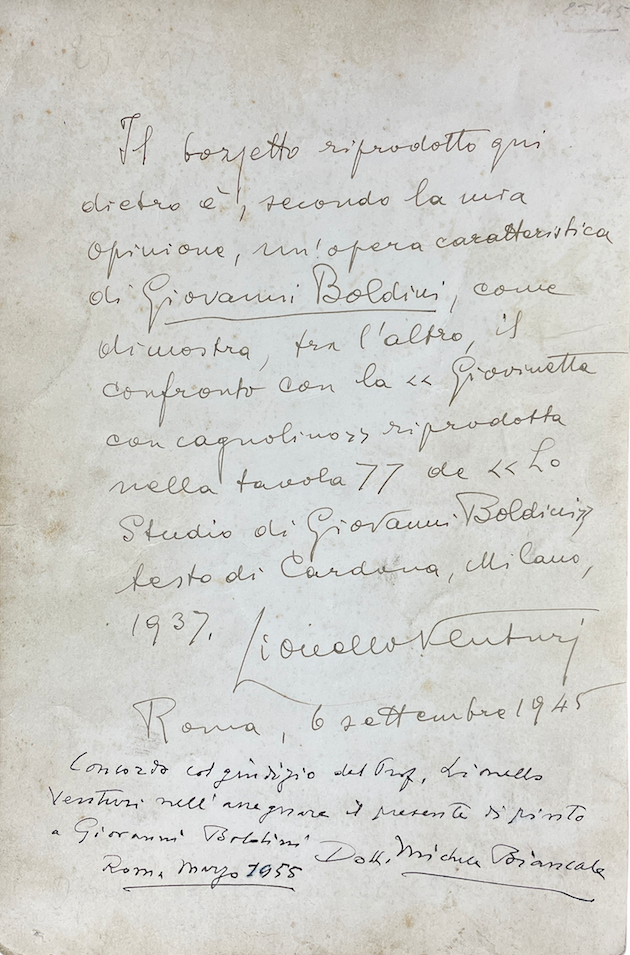 25145
Il bozzetto riprodotto qui
dietro è, secondo la mia
opinione, un'opera caratteristica
di Giovanni Boldini, come
dimostra, tra l'altro, il
confronto con la « Giovinetta
con cagnolino» riprodotta
nella tavola 77 de « Lo
Studio di Giovanni Boldini»
testo di Cardona, Milano,
1937.
Lionello Venturi
Roma, 6 settembre 1945
Concordo col giudizio del Prof. Lionello
Venturi nell'assegnare il presente dipinto
a Giovanni Boldini
Roma Marzo 1955 Dott. Michele Biancale